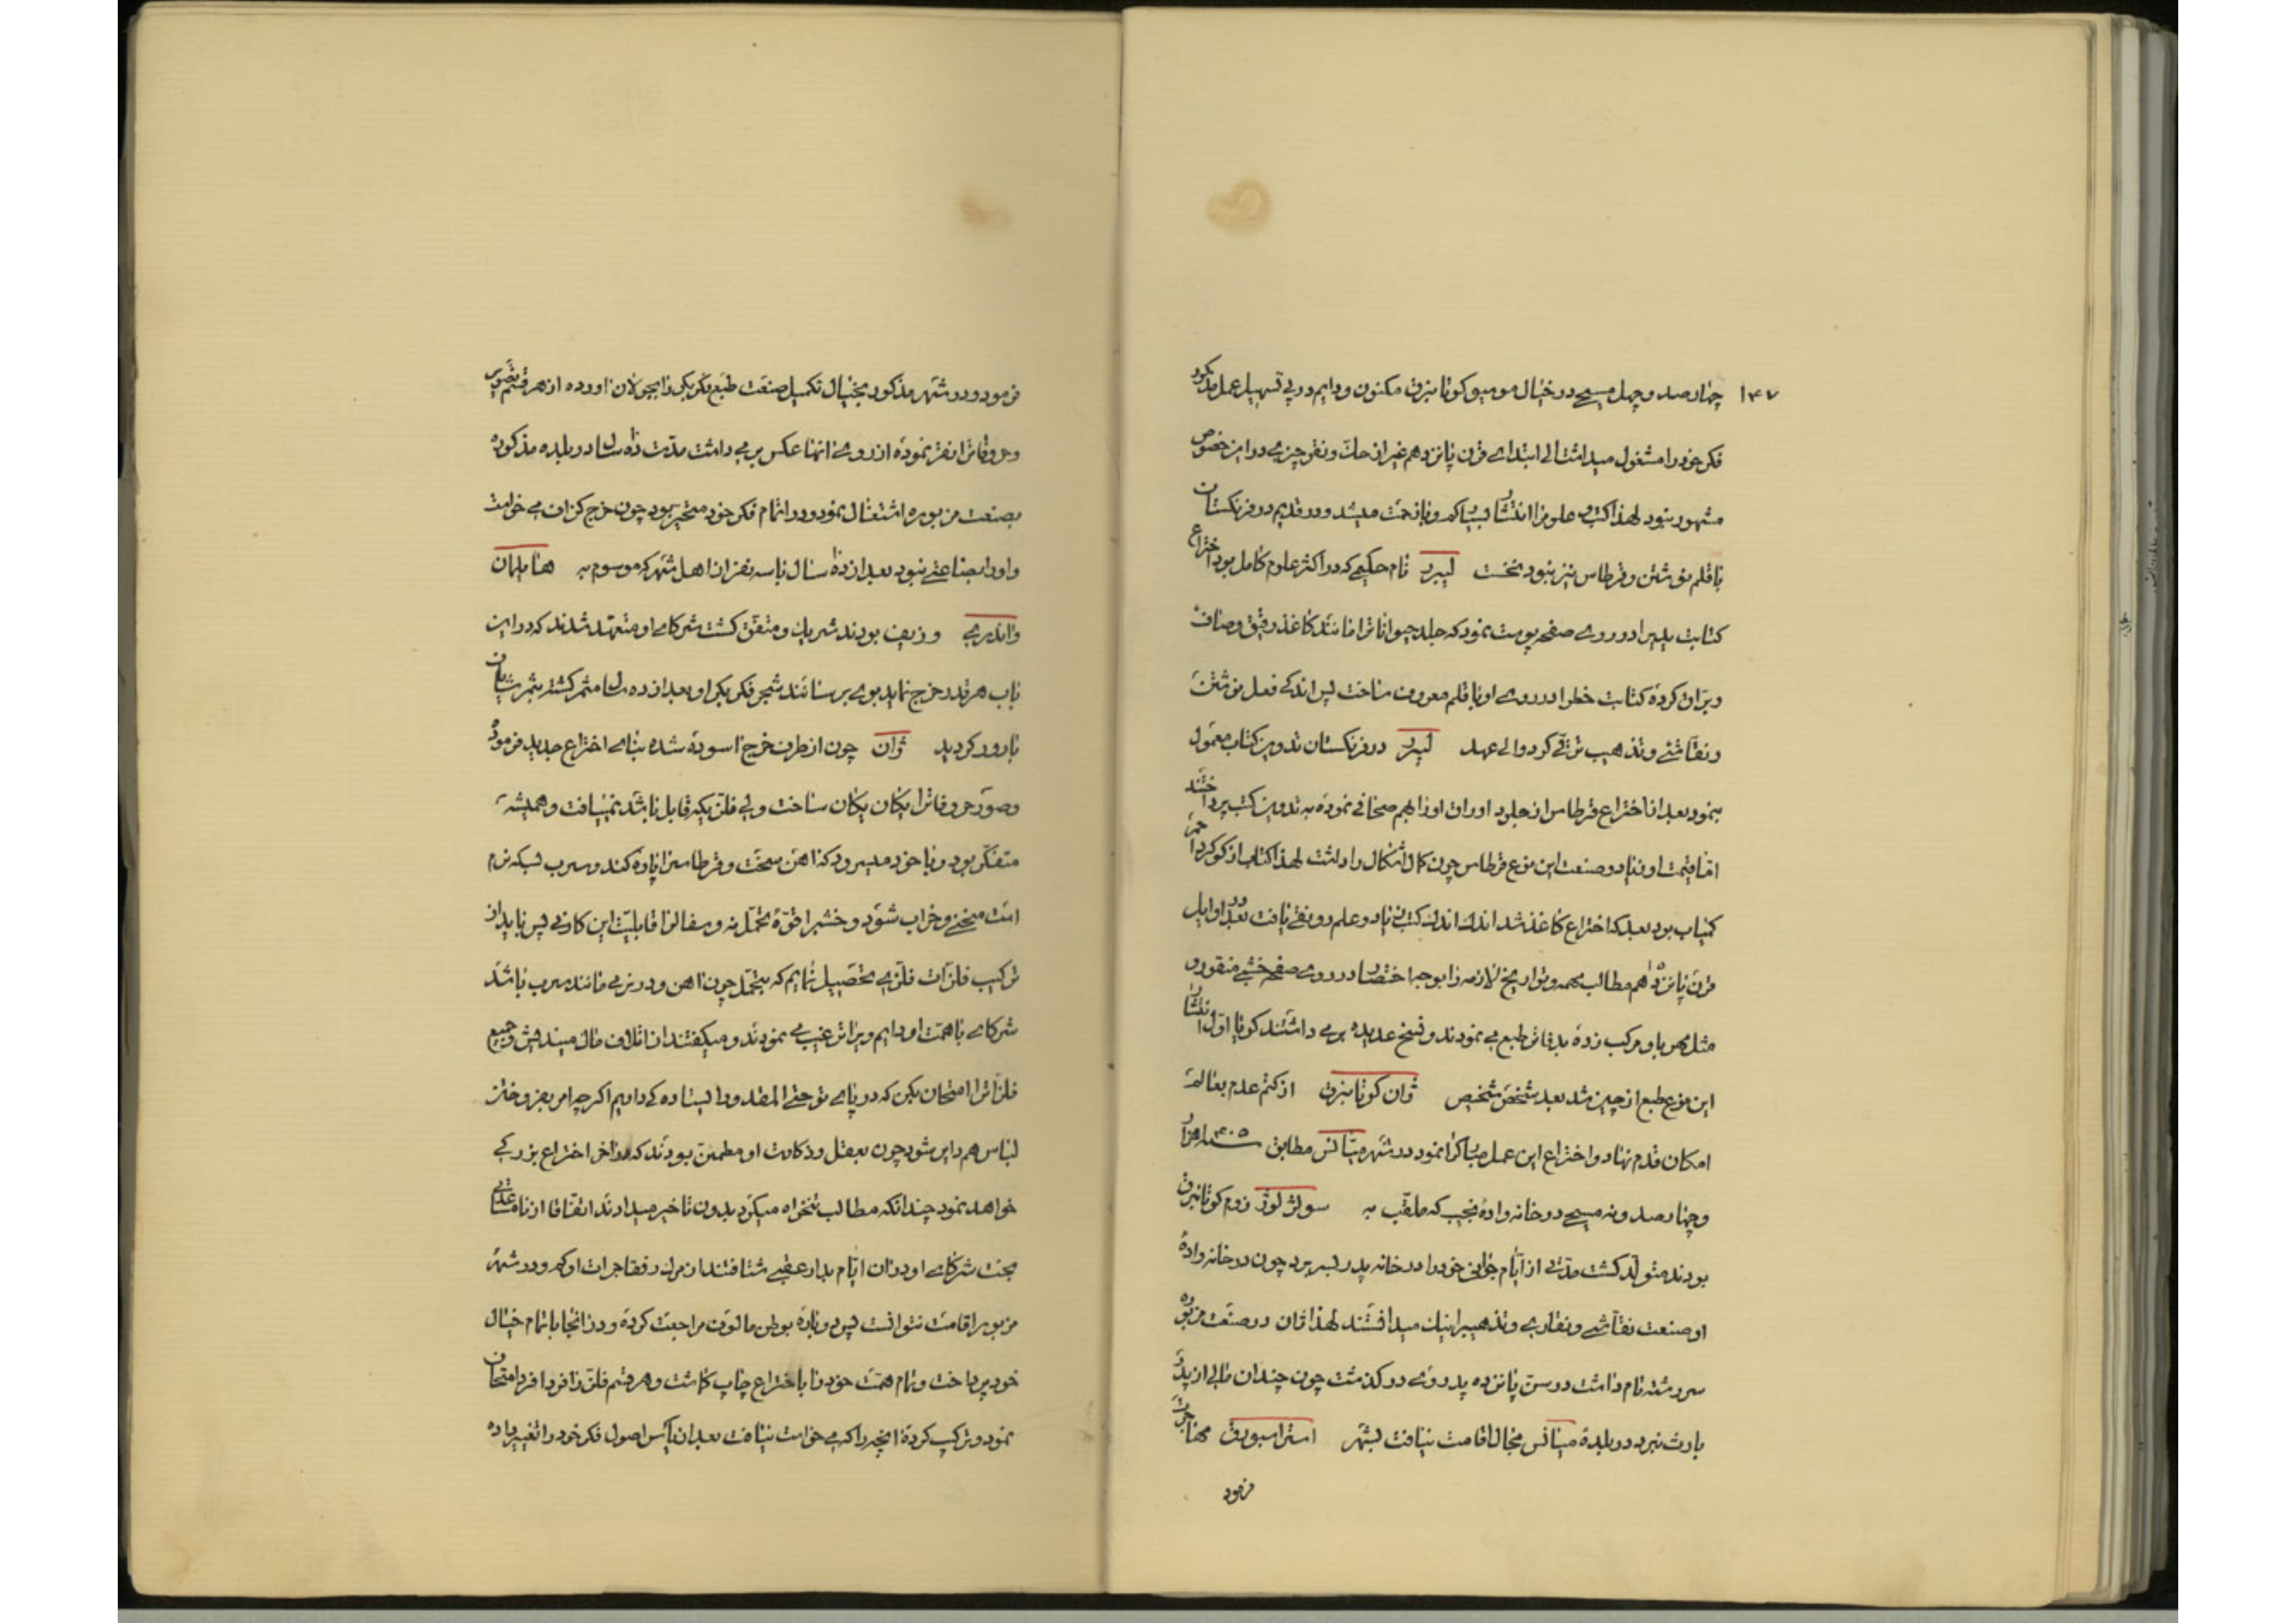 ۱۴۷
چهارصد و چهل مسیحی در خیال موسیو کوتانبرق مکنون و دایم در پی تسهیل عمل مذکور
فکر خود را مشغول میداشت الی ابتدای قرن پانزدهم غیر از حک و نقر چیزی در این خصوص
مشهور نبود لهذا کتب و علوم را انتشار بسیار کم و با زحمت میشد و در قدیم در فرنکستان
با قلم نوشتن و قرطاس نیز نبود نخست لیبرد نام حکیمی که در اکثر علوم کامل بود اختراع
کتابت پدید را در روی صفحه پوست نمود که جلد حیوانات را مانند کاغذ رقیق و صاف
و براق کرده کتابت خط را در روی او با قلم معروف ساخت پس اندکی فعل نوشتن
و نقاشی و تذهیب ترقی کرد و الی عهد لیبرد در فرنکستان تدوین کتاب معمول
نبود بعد از اختراع قرطاس از جلود اوراق او را بهم صحافی نموده به تدوین کتب پرداختند
اما قیمت او زیاد و صنعت این نوع قرطاس چون کمال اشکال را داشت لهذا کتاب از کوکرد احمر
کمیاب بود بعد که اختراع کاغذ شد اندک اندک کتب زیاد و علم رونقی یافت بعد در اوایل
قرن پانزدهم مطالب مهمه و تواریخ لازمه را بوجه اختصار در روی صفحه خشبی منقور و
مثل مهر با و مرکب زده بدفاتر طبع می نمودند و نسخ عدیده بر می داشتند کویا اول انتشار
این نوع طبع از چین شد بعد شخص شخیص ژوان کوتانبرق از کتم عدم بعالم
امکان قدم نهاد و اختراع این عمل مبارک را نمود در شهر میانس مطابق ۱۴۰۵ هزار
و چهارصد و نه مسیحی در خانواده نجیب که ملقب به سولژلوژ دوم کوتانبرق
بودند متولد کشت مدتی از ایام جوانی خود را در خانه پدر بسر برد چون در خانواده
او صنعت نقاشی و نقاری و تذهیب را نیک میدانستند لهذا ژان در صنعت مزبوره
سررشته تام داشت در سن پانزده پدر وی در کذشت چون چندان مالی از پدر
بارث نبرد در بلده میانس مجال اقامت نیافت بشهر استراسبورق مهاجرت
فرمود
فرمود و در شهر مذکور بخیال تکمیل صنعت طبع فکر بکر را بجولان اورده از هر قسم تصویر
و حروفات را نقر نموده از روی انها عکس بر می داشت مدت ده سال در بلده مذکوره
بصنعت مزبوره اشتغال نمود و در اتمام فکر خود متحیر بود چون خرج کزاف می خواست
و او را بضاعتی نبود بعد از ده سال با سه نفر از اهل شهر که موسوم به هانایلمان
و اندری و ژیف بودند شریک و متفق کشت شرکای او متعهد شدند که در این
باب هر قدر خرج نماید بوی برسانند شجر فکر بکر او بعد از ده سال مثمر کشته بثمر شایان
بارور کردید ژوان چون از طرف خرج اسوده شده بنای اختراع جدید فرموده
و صور حروفات را یکان یکان ساخت ولی فلزیکه قابل باشد نمییافت و همیشه
متفکر بود و با خود میسرود که اهن سخت و قرطاس را پاره کند و سرب لبکه نرم
است منحنی و خراب شود و خشب را قوهٔ تحمل نه و سفال را قابلیت این کار نی پس باید از
ترکیب فلزات فلزی تحصیل نمایم که بتحمل چون اهن و در نرمی مانند سرب باشد
شرکای با همت او دایم ویرا ترغیب می نمودند و میکفتند از اتلاف مال میندیش و جمیع
فلزات را امتحان بکن که در پای تو حتی المقدور ایستاده کی داریم اکرچه امر بفروختن
لباس هم دایر شود چون بعقل و ذکاوت او مطمئن بودند که در اخر اختراع بزرکی
خواهد نمود چندانکه مطالب تنخواه میکرد بدون تاخیر میدادند اتفاقا از نامساعدتی
بخت شرکای او در ان ایام بدار عقبی شتافتند از مرک رفقا جرات او کم و در شهر
مزبور اقامت نتوانست پس دوباره بوطن مالوف مراجعت کرده و در انجا باتمام خیال
خود پرداخت و تمام همت خود را با اختراع چاپ کماشت و هر قسم فلز را فردا فرد امتحان
نمود و ترکیب کرده انچه را که می خواست نیافت بعد از یأس اصول فکر خود را تغییر داده